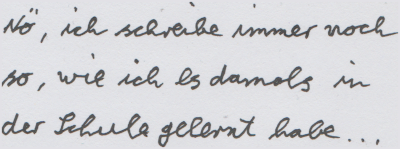 Nö, ich schreibe immer noch
so, wie ich es damals in
der Schule gelernt habe...